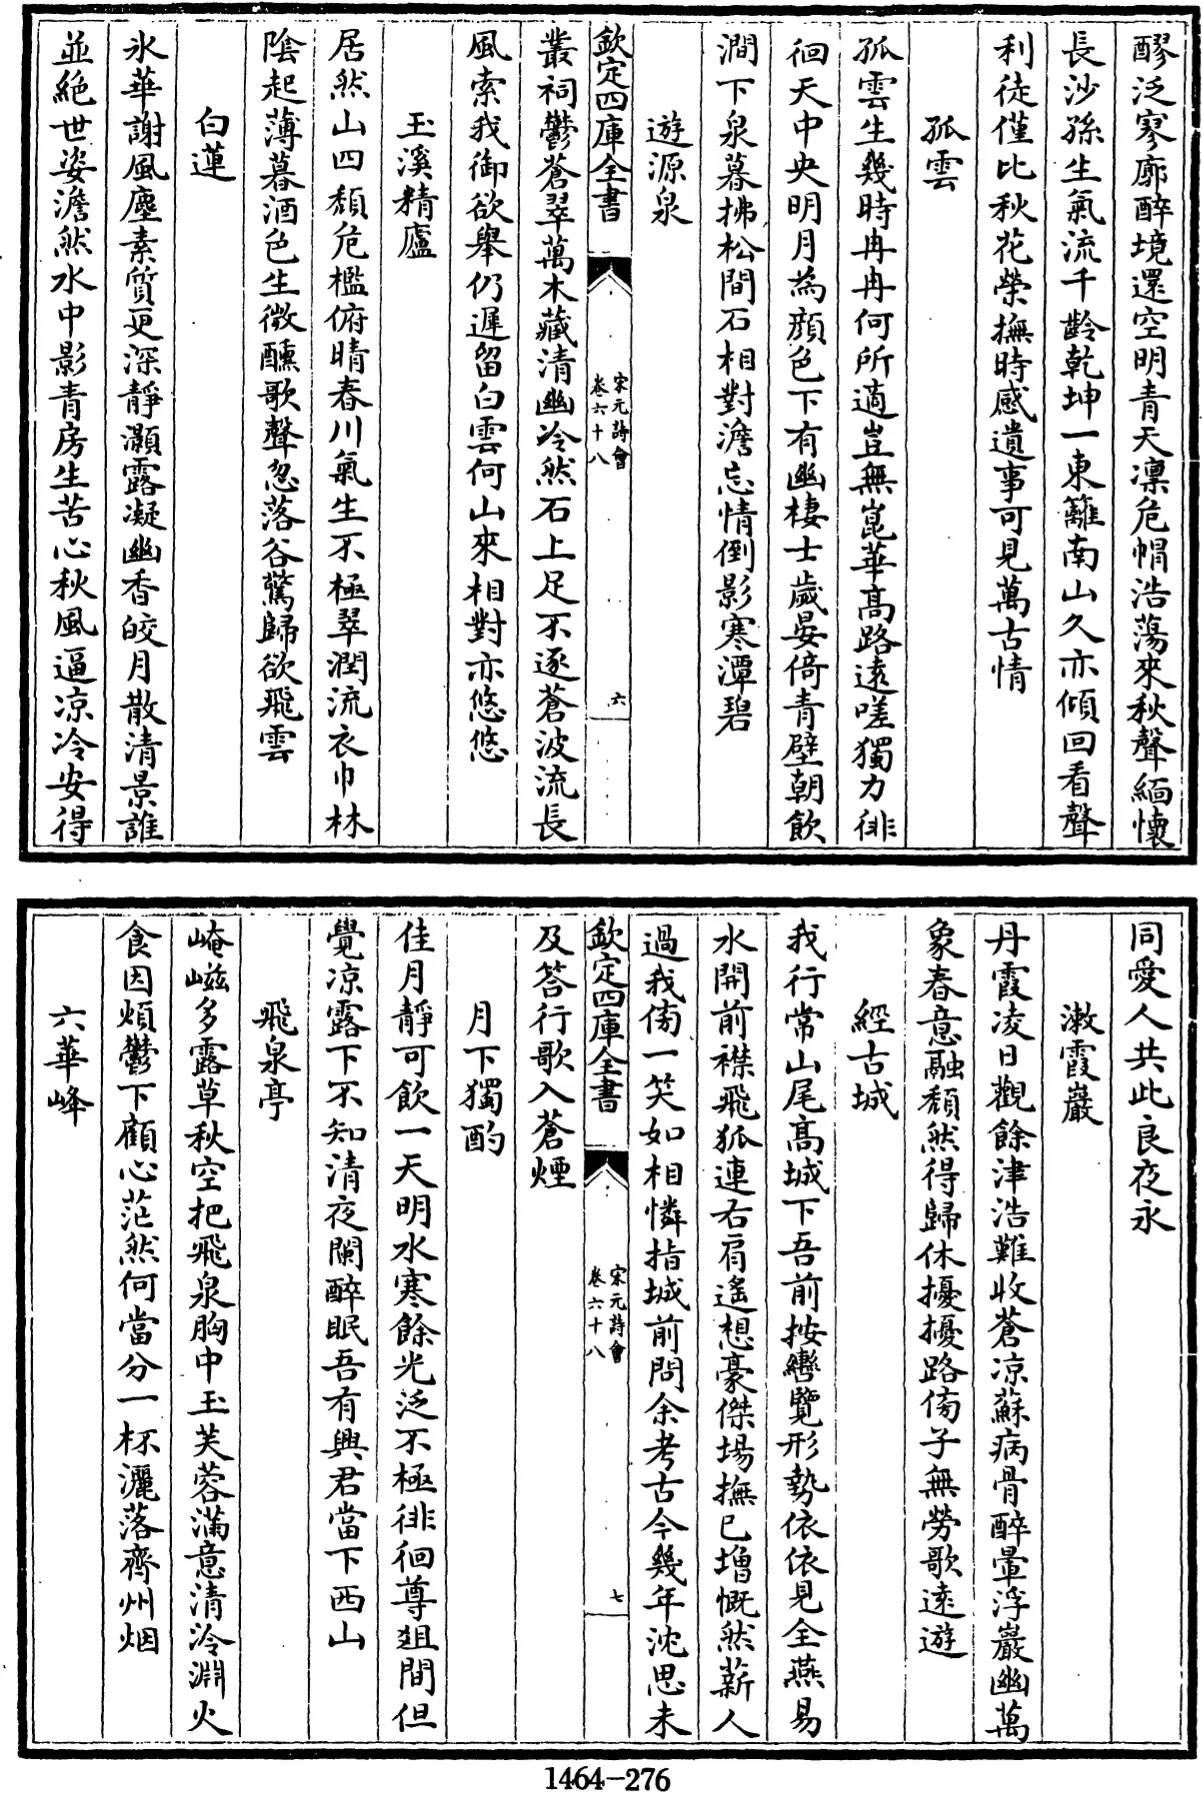 醪泛寥廓醉境還空明青天凛危帽浩蕩來秋聲緬懷
長沙孫生氣流千齡乾坤一東籬南山久亦傾回看聲
利徒僅比秋花榮撫時感遺事可見萬古情
孤雲
孤雲生幾時冉冉何所適豈無崑華高路遠嗟獨力徘
徊天中央明月為顔色下有幽棲士歲晏倚青壁朝飲
澗下泉暮拂松間石相對澹忘情倒影寒潭碧
遊源泉
欽定四庫全書
宋元詩會
卷六十八
六
叢祠鬱蒼翠萬木藏清幽冷然石上足不逐蒼波流長
風索我御欲舉仍遲留白雲何山來相對亦悠悠
玉溪精廬
居然山四頽危檻俯晴春川氣生不極翠潤流衣巾林
陰起薄暮酒色生微醺歌聲忽落谷驚歸欲飛雲
白蓮
氷華謝風塵素質更深靜灝露凝幽香皎月散清景誰
並絶世姿澹然水中影青房生苦心秋風逼凉冷安得
同愛人共此良夜永
漱霞巖
丹霞凌日觀餘津浩難收蒼凉蘇病骨醉暈浮巖幽萬
象春意融頽然得歸休擾擾路傍子無勞歌遠遊
經古城
我行常山尾高城下吾前按轡覽形勢依依見全燕易
水開前襟飛狐連右肩遙想豪傑場撫已增慨然薪人
過我傍一笑如相憐指城前問余考古今幾年沈思未
欽定四庫全書
宋元詩會
卷六十八
七
及答行歌入蒼煙
月下獨酌
佳月靜可飲一天明水寒餘光泛不極徘徊尊俎間但
覺凉露下不知清夜闌醉眠吾有興君當下西山
飛泉亭
崦嵫多露草秋空把飛泉胸中玉芙蓉滿意清泠淵火
食因煩鬱下顧心茫然何當分一杯灑落齊州烟
六華峰
1464-276